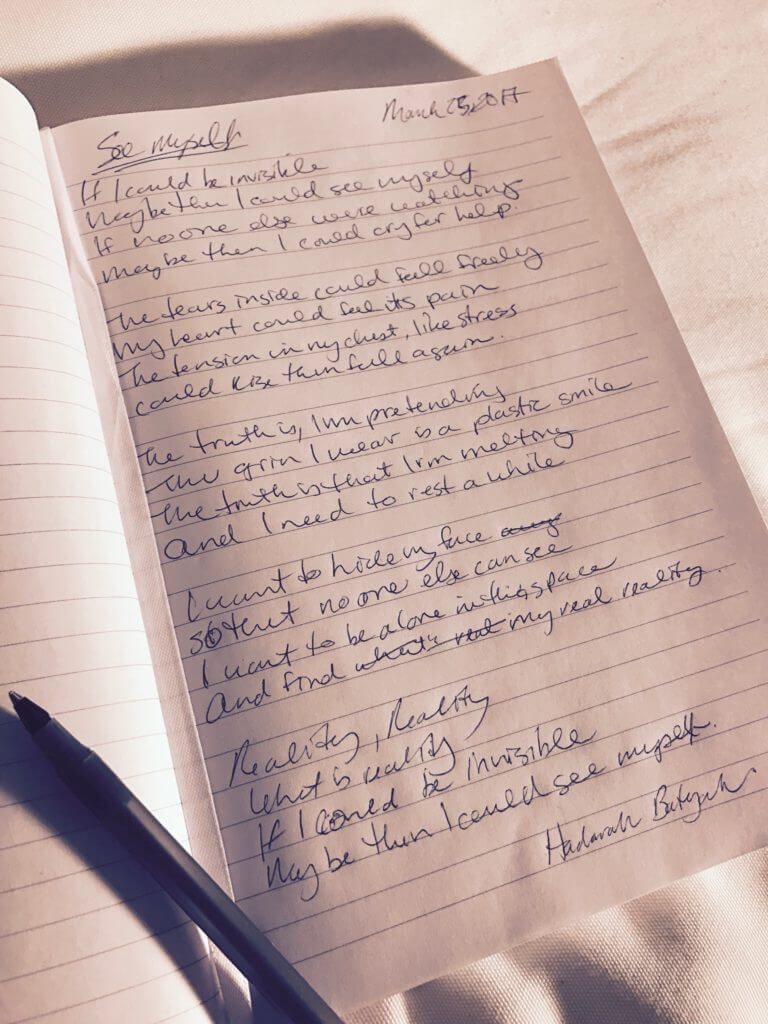 See myself
March 25, 2017
If I could be invisible
Maybe then I could see myself
If no one else were watching
maybe then I could cry for help.
The tears inside could fall freely
My heart could feel its pain
The tension in my chest, like stress
could rise then fall again.
The truth is, I'm pretending
The grin I wear is a plastic smile
The truth is that I'm melting
And I need to rest a while
I want to hide my face away
so that no one else can see
I want to be alone in this space
And find what's real my real reality.
Reality, Reality
What is reality
If I could be invisible
Maybe then I could see myself.
Hadarah